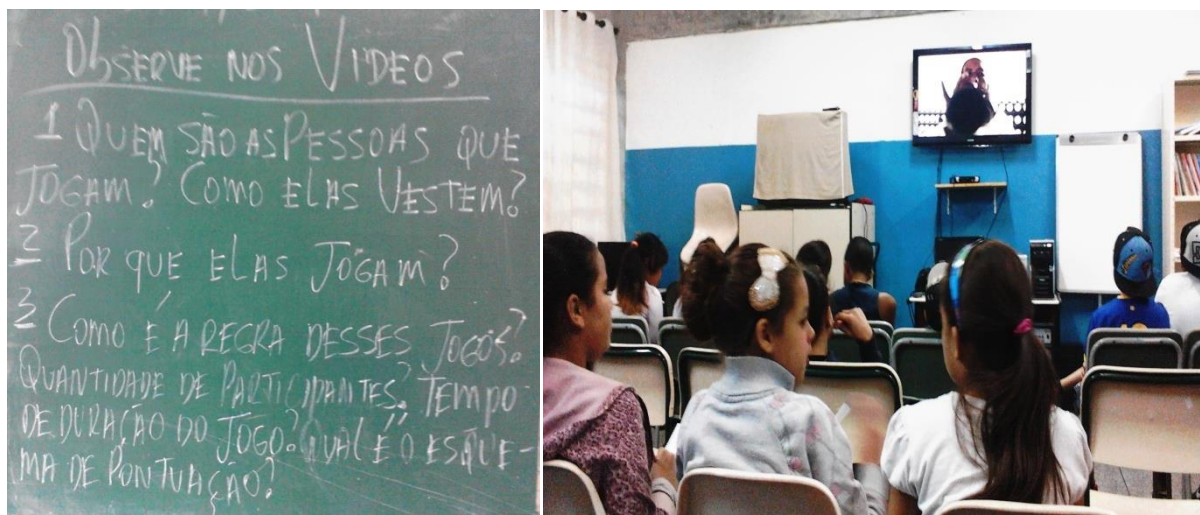 Observe nos Videos
1 Quem são as Pessoas que
Jogam? Como elas Vestem?
2 Por que elas Jogam?
3 Como é a regra desses Jogos?
Quantidade de Participantes? Tempo
de duração do Jogo? Qual é o esque-
ma de Pontuação?